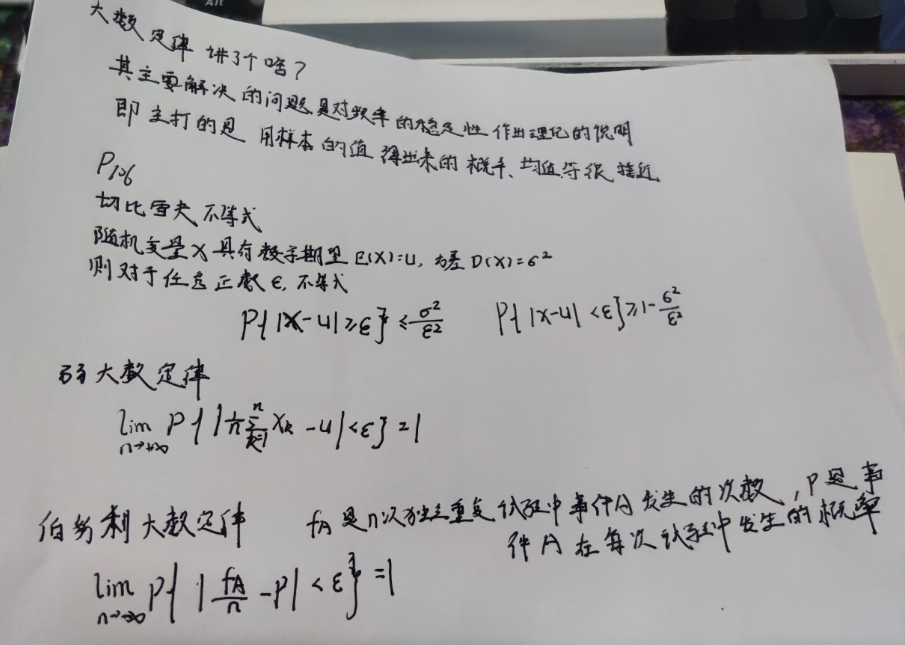 大数定律 讲了个啥?
其主要解决的问题是对频率的稳定性作出理论的说明
即主打的是 用样本的值得出来的概率、均值等很接近
P126
切比雪夫不等式
随机变量X具有数学期望E(X)=u, 方差D(X)=σ²
则对于任意正数ε, 不等式
P{|X-u|≥ε}≤σ²/ε² P{|X-u|<ε}≥1-σ²/ε²
弱大数定律
lim n→+∞ P{|1/n ∑ k=1 n Xk -u|<ε}=1
伯努利大数定律 fA是n次独立重复试验中事件A发生的次数, P是事
件A在每次试验中发生的概率
lim n→∞ P{|fA/n -P|<ε}=1